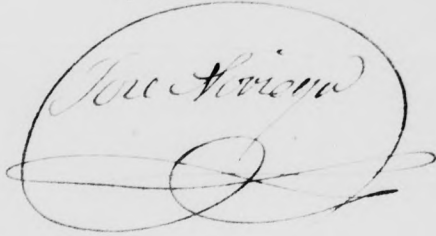 Jose Noriega